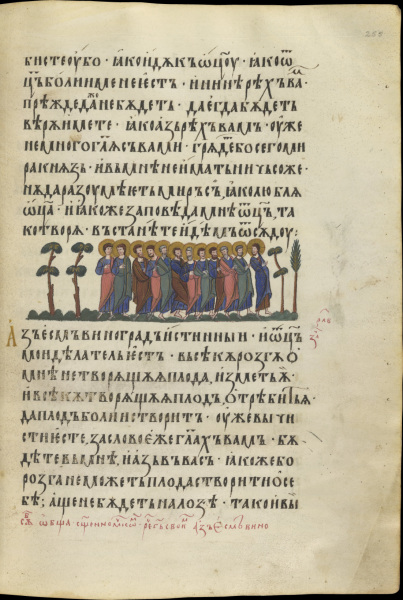 бистеоубо · ꙗкоидѫкъѡц҃оу · ꙗкоѡ
ц҃ъболиименеѥстъ · ининѣрѣхъва
прѣждедаженебѫдетъ · даегдабѫдетъ
вѣрѫимете · ꙗкоазьрѣхъвамъ · оуже
немногогл҃ѧсъвами · грѧдетбосегоми
ракнѧзь · ивъмнѣнеиматъничьсоже ·
нѫдаразоумѣѥтьмиръсъ, ꙗколюблѧ
ѡц҃а · иꙗкожезаповѣдамнѣѡц҃ъ, та
котворѧ · въстанѣтеидѣмъѿсѫдоу :
Азъесмъвиноградъистинныи · иѡц҃ъ
моидѣлательѥстъ · всѣкѫрозгѫѡ
мнѣнетворѧщѫѧплода, измѣтьѫ ·
ивсѣкѫтворѧщѫѧплодъ, отрѣбитьѧ
даплодъболиистворитъ · ѹжевычи
стиѥсте, засловоежегл҃ахъвамъ · бѫ
дѣтевъмнѣ, иазьвъвасъ · ꙗкожебо
розганеможетьплодастворитиѡсе
бѣ ; ащенебѫдетъналозѣ · такоивы